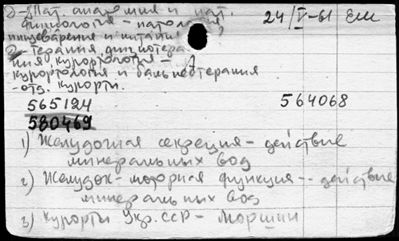 2-Пат. анатомия и пат.
физиология - патология
пищеварения и питания
24/V-61 Еш
2-Терапия физиотера-
пия курортология -
курортология и бальнеотерапия
-отд. курорты.
565124 564068
580469
1) Желудочная секреция - действие
минеральных вод
2) Желудок - моторная функция -- действие
минеральных вод
3) Курорты Укр. ССР - Моршин